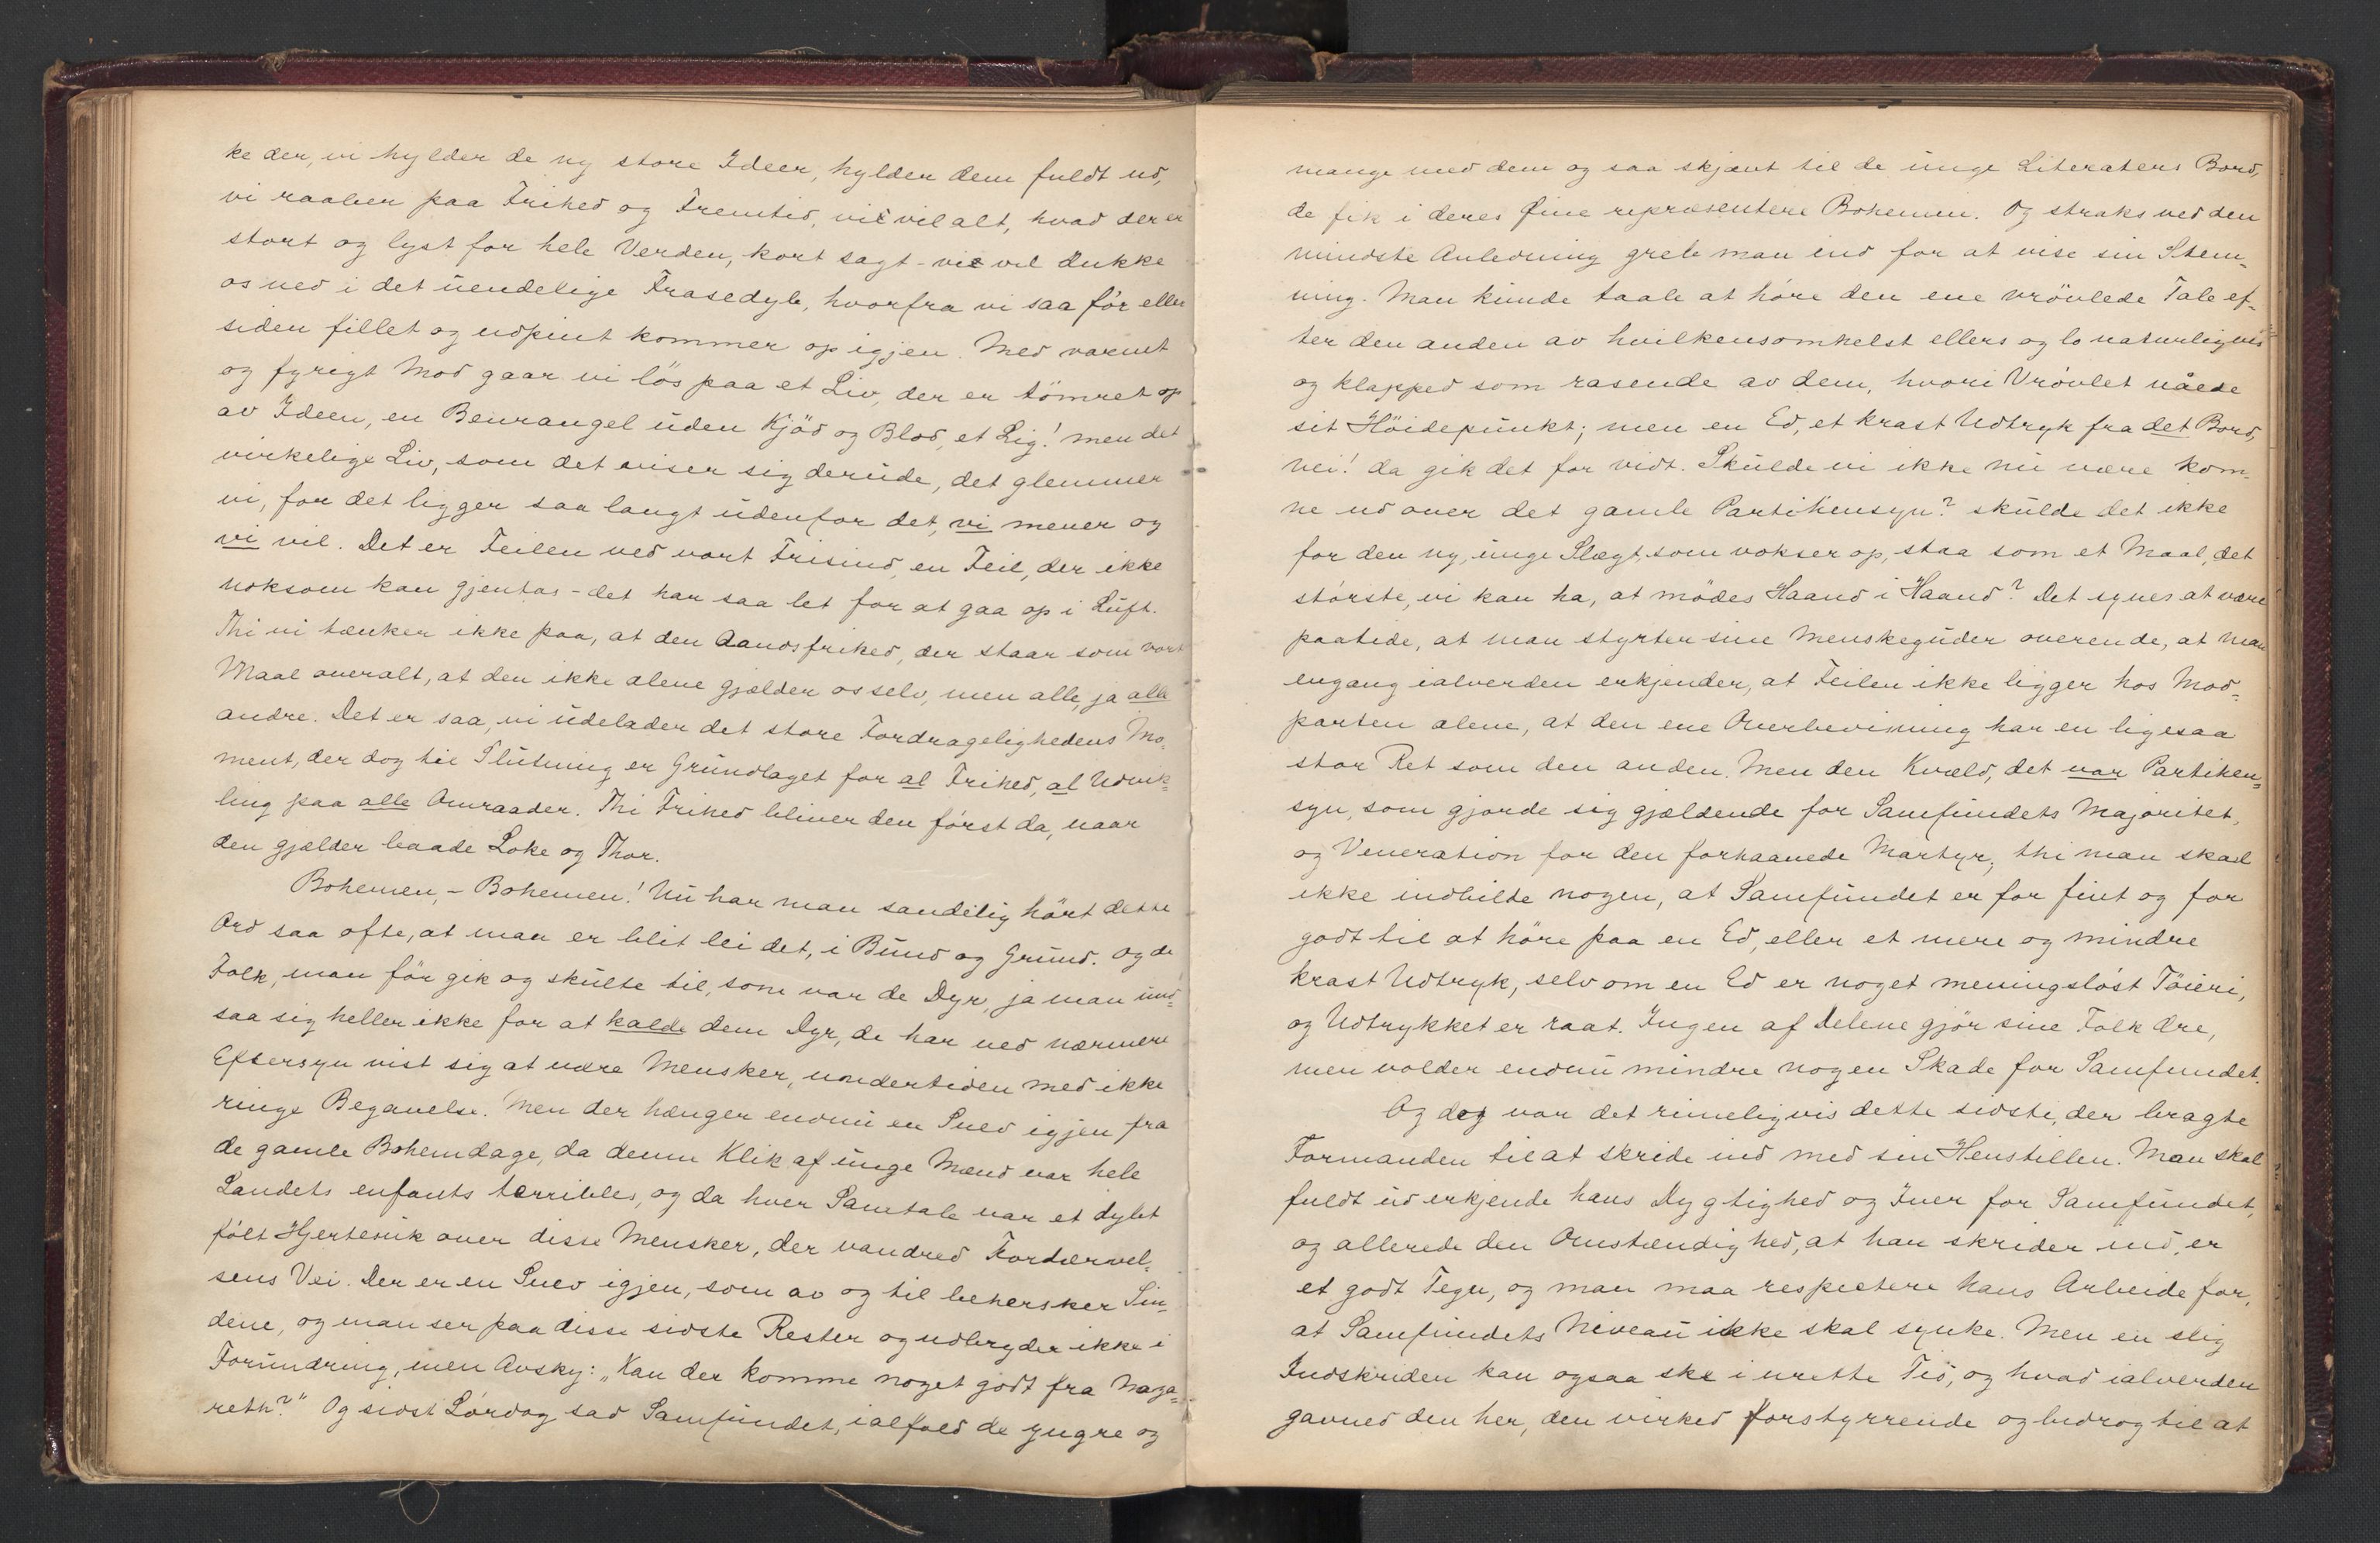 ke der, vi hylder de ny store Ideer, hylder dem fuldt ud,
vi raaber paa Frihed og Fremtid, vi vil alt, hvad der er
stort og lyst for hele Verden, kort sagt - vi vil dukke
os ned i det uendelige Frasedyb, hvorfra vi saa för eller
siden fillet og udpint kommer op igjen. Med varmt
og fyrigt Mod gaar vi lös paa et Liv, der er tömret op
av Ideen, en Benrangel uden Kjöd og Blod, et Lig! men det
virkelige Liv, som det viser sig derude, det glemmer
vi, for det ligger saa langt udenfor det, vi mener og
vi vil. Det er Feilen ved vort Frisind, en Feil, der ikke
noksom kan gjentas - det har saa let for at gaa op i Luft.
Thi vi tænker ikke paa, at den Aandsfrihed, der staar som vort
Maal overalt, at den ikke alene gjælder os selv, men alle, ja alle
andre. Det er saa, vi udelader det store Fordragelighedens Mo-
ment, der dog til Slutning er Grundlaget for al Frihed, al Udvik-
ling paa alle Omraader. Thi Frihed bliver den först da, naar
den gjælder baade Loke og Thor.
Bohemen, - Bohemen! Nu har man sandelig hört dette
Ord saa ofte, at man er blit lei det, i Bund og Grund. Og de
Folk, man för gik og skulte til, som var de Dyr, ja man und-
saa sig heller ikke for at kalde dem Dyr, de har ved nærmere
Eftersyn vist sig at være Mensker, undertiden med ikke
ringe Begavelse. Men der hænger endnu en Snev igjen fra
de gamle Bohemdage, da denne Klik af unge Mænd var hele
Landets enfants terribles, og da hver Samtale var et dybt
fölt Hjertesuk over disse Mensker, der vandred Fordærvel-
sens Vei. Der er en Snev igjen, som av og til behersker Sin-
dene, og man ser paa disse sidste Rester og udbryder ikke i
Forundring, men Avsky: „Kan der komme noget godt fra Naza-
reth?" Og sidst Lördag sad Samfundet, ialfald de yngre og
mange med dem og saa skjævt til de unge Literaters Bord,
de fik i deres Öine repræsentere Bohemen. Og straks ved den
mindste Anledning greb man ind for at vise sin Stem-
ning. Man kunde taale at höre den ene vrövlede Tale ef-
ter den anden av hvilkensomhelst ellers og lo naturligvis
og klapped som rasende av dem, hvori Vrövlet nåede
sit Höidepunkt; men en Ed, et krast Udtryk fra det Bord,
nei! da gik det for vidt. Skulde vi ikke nu være kom-
ne ud over det gamle Partihensyn? skulde det ikke
for den ny, unge Slægt, som vokser op, staa som et Maal, det
störste, vi kan ha, at mödes Haand i Haand? Det synes at være
paatide, at man styrter sine Menskeguder overende, at man
engang ialverden erkjender, at Feilen ikke ligger hos Mod-
parten alene, at den ene Overbevisning har en ligesaa
stor Ret som den anden. Men den Kvæld, det var Partihen-
syn, som gjorde sig gjældende for Samfundets Majoritet,
og Veneration for den forhaanede Martyr; thi man skal
ikke indbilde nogen, at Samfundet er for fint og for
godt til at höre paa en Ed, eller et mere og mindre
krast Udtryk, selv om en Ed er noget meningslöst Töieri,
og Udtrykket er raat. Ingen af Delene gjör sine Folk Ære,
men volder endnu mindre nogen Skade for Samfundet.
Og dog var det rimeligvis dette sidste, der bragte
Formanden til at skride ind med sin Henstillen. Man skal
fuldt ud erkjende hans Dygtighed og Iver for Samfundet,
og allerede den Omstændighed, at han skrider ind, er
et godt Tegn, og man maa respektere hans Arbeide for,
at Samfundets Niveau ikke skal synke. Men en slig
Indskriden kan ogsaa ske i urette Tid, og hvad ialverden
gavned den her, den virked forstyrrende og bidrog til at